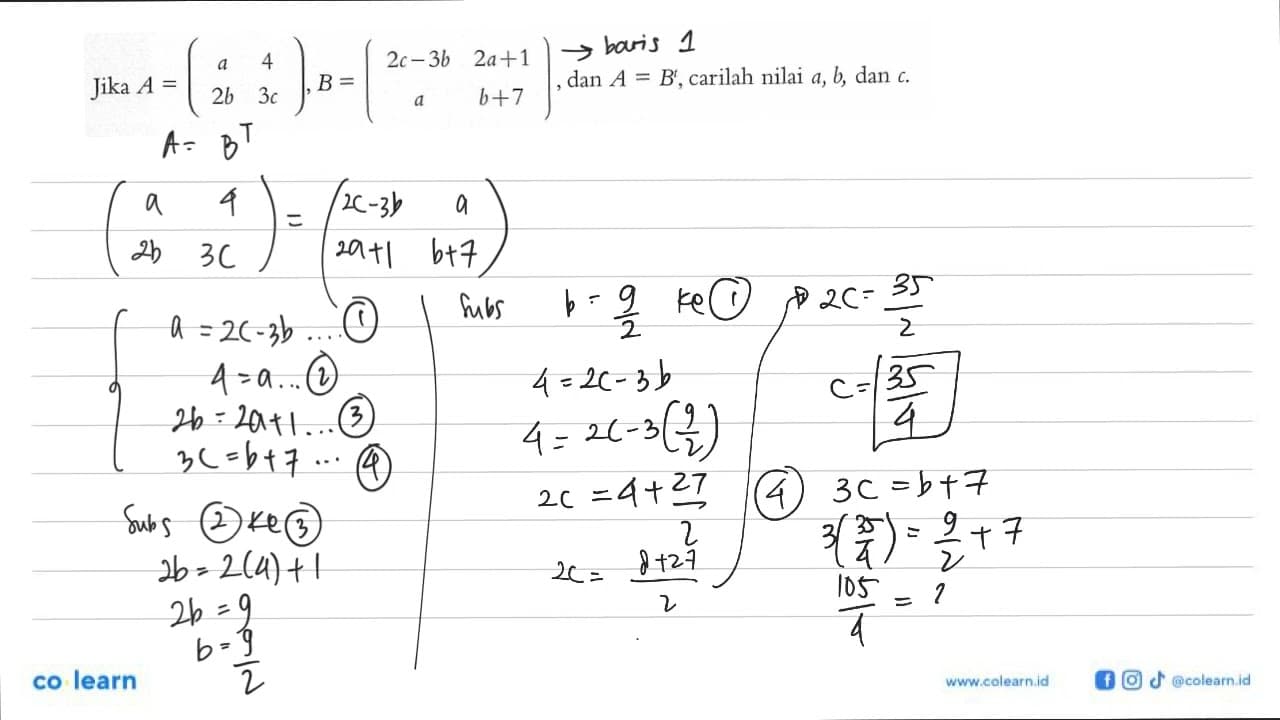 Jika A = ( a 4 2b 3c ), B = ( 2c−3b 2a+1 a b+7 ), dan A = Bᵗ, carilah nilai a, b, dan c.
→ baris 1
A = Bᵀ
( a 4 = ( 2c-3b a
2b 3c ) 2a+1 b+7 )
a = 2c-3b .... ①
4 = a ... ②
2b = 2a+1 ... ③
3c = b+7 ... ④
Subs ② ke ③
2b = 2(4)+1
2b = 9
b = 9/2
Subs b = 9/2 ke ①
4 = 2c-3b
4 = 2c-3(9/2)
2c = 4+27/2
2c = 8+27/2
2c = 35/2
c = 35/4
④ 3c = b+7
3(35/4) = 9/2 + 7
105/4 = ?
co learn
www.colearn.id
@colearn.id